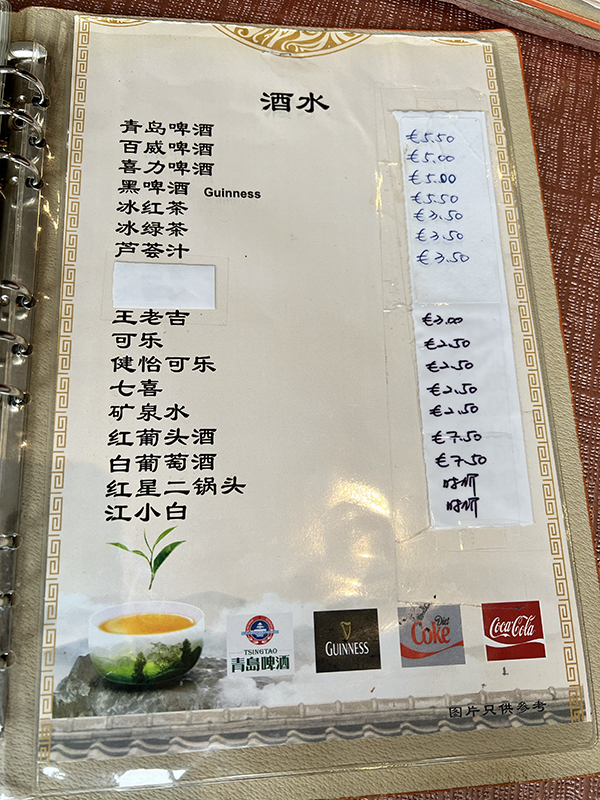 酒水
青岛啤酒 €5.50
百威啤酒 €5.00
喜力啤酒 €5.00
黑啤酒 Guinness €5.50
冰红茶 €3.50
冰绿茶 €3.50
芦荟汁 €3.50
王老吉 €3.00
可乐 €2.50
健怡可乐 €2.50
七喜 €2.50
矿泉水 €2.50
红葡头酒 €7.50
白葡萄酒 €7.50
红星二锅头 时价
江小白 时价
TSINGTAO
青島啤酒
GUINNESS
Diet
Coke
Coca-Cola
图片只供参考